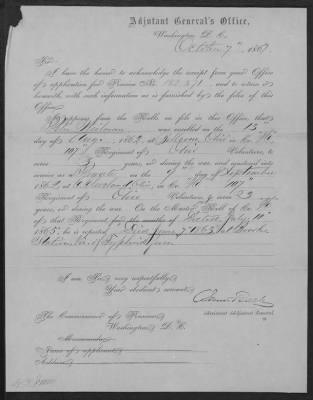 Adjutant General's Office,
Washington, D. C.
October 7th, 1867
Sir:
I have the honor to acknowledge the receipt from your Office
of application for Pension No. and to return it
herewith, with such information as is furnished by the files of this
Office.
It appears from the Rolls on file in this Office, that
was enrolled on the 15
day of Aug, 1862, at Ohio in Co.
107th Regiment of Ohio Volunteers, to
serve 3 years, or during the war, and mustered into
service as a on the 9th day of September
1862, at Cleveland, Ohio, in Co. 107th
Regiment of Ohio Volunteers, to serve 3
years, or during the war. On the Muster Roll of Co.
of that Regiment, for the months of dated July 10th
1865, he is reported Died June 7th 1863, at Brooke
Station Va. of Typhoid
I am, Sir, very respectfully,
Your obedient servant,
Assistant Adjutant General.
The Commissioner of Pensions
Washington, D. C.
Memoranda:
Name of applicant,
Address,